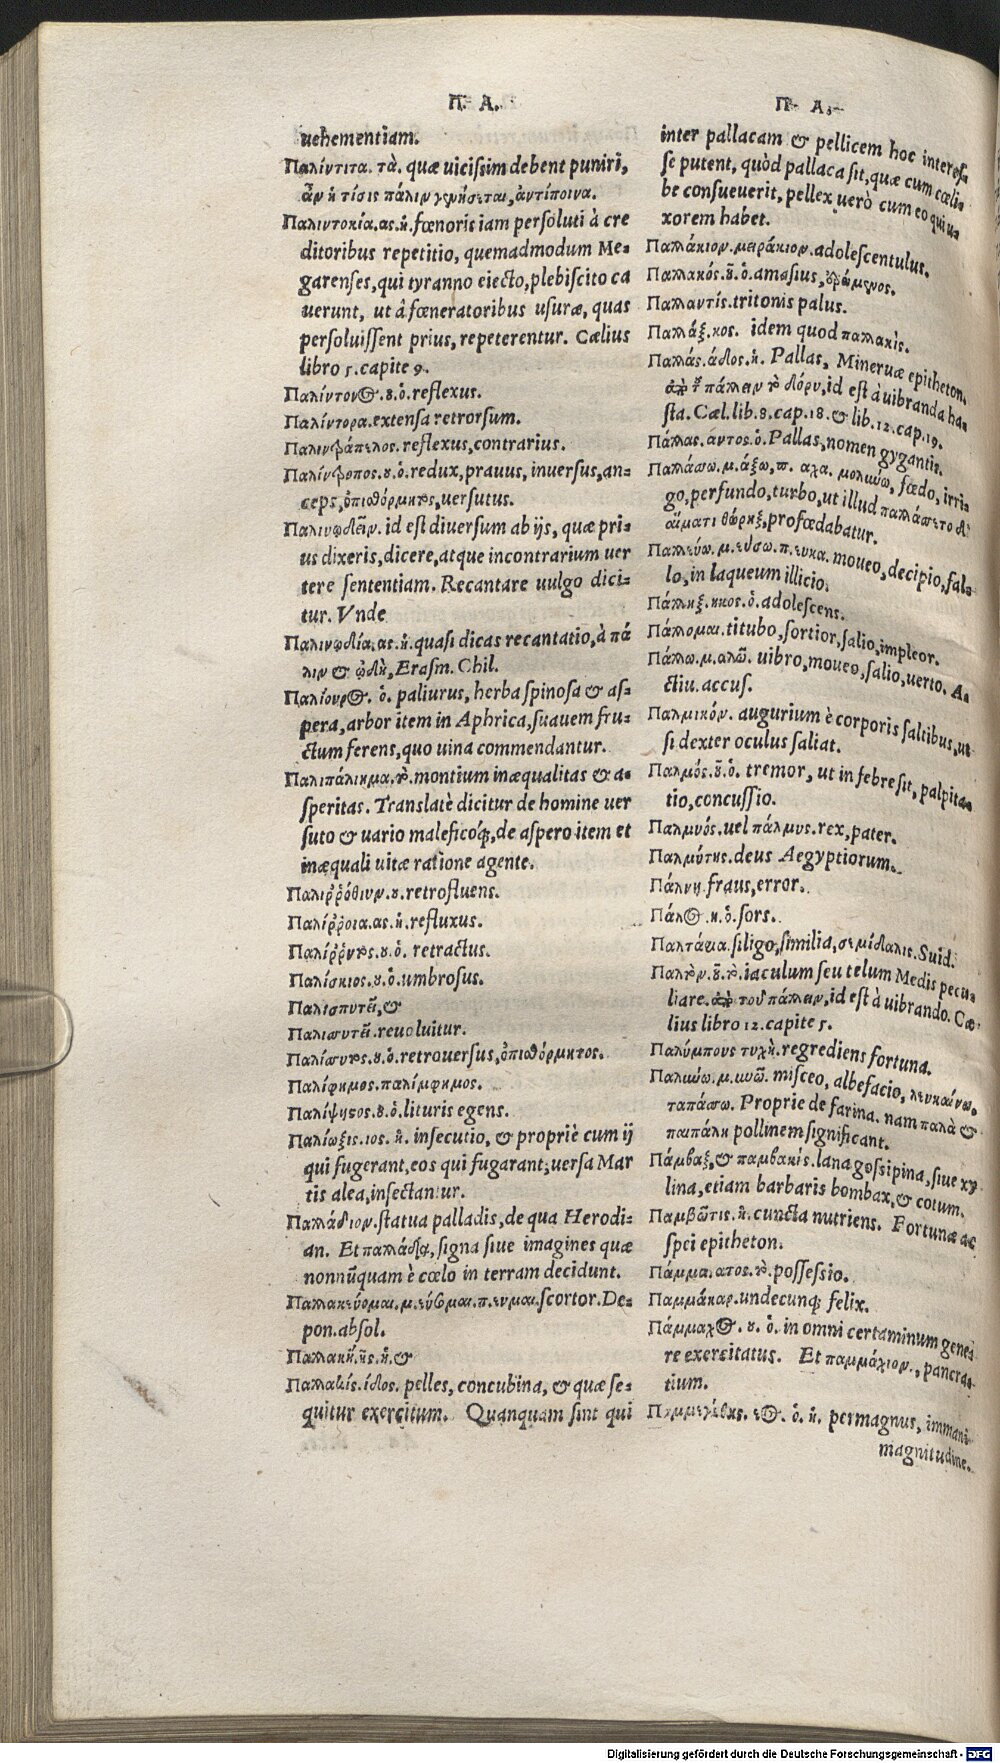 Π. Α.
uehementiam.
Παλίντιτα. τὰ. quæ uicissim debent puniri,
ἂν ἡ τίσις πάλιν γενήσεται, ἀντίποινα.
Παλιντοκία. ας. ἡ. fœnoris iam persoluti à cre
ditoribus repetitio, quemadmodum Me-
garenses, qui tyranno eiecto, plebiscito ca
uerunt, ut â fœneratoribus usuræ, quas
persoluissent prius, repeterentur. Cælius
libro 5. capite 9.
Παλίντονος. ου. ὁ. reflexus.
Παλίντορα. extensa retrorsum.
Παλιντράπελος. reflexus, contrarius.
Παλίντροπος. ου. ὁ. redux, prauus, inuersus, an-
ceps, ὀπισθόρμητος, uersutus.
Παλινῳδεῖν. id est diuersum ab ijs, quæ pri-
us dixeris, dicere, atque incontrarium uer
tere sententiam. Recantare uulgo dici-
tur. Vnde
Παλινῳδία. ας. ἡ. quasi dicas recantatio, à πά
λιν & ᾠδὴ, Erasm. Chil.
Παλίουρος. ὁ. paliurus, herba spinosa & as-
pera, arbor item in Aphrica, suauem fru-
ctum ferens, quo uina commendantur.
Παλιπάλημα. τὸ. montium inæqualitas & a-
speritas. Translatè dicitur de homine uer
suto & uario maleficoq́;, de aspero item et
inæquali uitæ ratione agente.
Παλιῤῥόθιον. ου. retrofluens.
Παλίῤῥοια. ας. ἡ. refluxus.
Παλίῤῥυτος. ου. ὁ. retractus.
Παλίσκιος. ου. ὁ. umbrosus.
Παλισπυτεῖ, &
Παλισυτεῖ. reuoluitur.
Παλίσυτος. ου. ὁ. retrouersus, ὀπισθόρμητος.
Παλίφημος. παλίμφημος.
Παλίψηστος. ου. ὁ. lituris egens.
Παλίωξις. ιος. ἡ. insecutio, & propriè cum ij
qui fugerant, eos qui fugarant, uersa Mar
tis alea, insectantur.
Παλλάδιον. statua palladis, de qua Herodi-
an. Et παλλάδια, signa siue imagines quæ
nonnūquam è cœlo in terram decidunt.
Παλλακεύομαι. μ. εύσομαι. π. ευμαι. scortor. De-
pon. absol.
Παλλακή. ῆς. ἡ. &
Παλλακίς. ίδος. pelles, concubina, & quæ se-
quitur exercitum. Quanquam sint qui
Π. Α.
inter pallacam & pellicem hoc interes-
se putent, quòd pallaca sit, quæ cum cœli-
be consueuerit, pellex uerò cum eo qui u-
xorem habet.
Παλλάκιον. μειράκιον. adolescentulus.
Παλλακός. οῦ. ὁ. amasius, ἐρώμενος.
Παλλαντίς. tritonis palus.
Παλλάξ. κος. idem quod παλλακὶς.
Παλλάς. άδος. ἡ. Pallas, Mineruæ epitheton,
ἀπὸ τοῦ πάλλειν τὸ δόρυ, id est à uibranda ha-
sta. Cæl. lib. 8. cap. 18. & lib. 12. cap. 19.
Πάλλας. αντος. ὁ. Pallas, nomen gygantis.
Παλλάσσω. μ. άξω, π. αχα. μολύνω, fœdo, irri-
go, perfundo, turbo, ut illud παλλάσσετο δ'
αἵματι θώρηξ, profœdabatur.
Παλλεύω. μ. εύσω. π. ευκα. moueo, decipio, fal-
lo, in laqueum illicio.
Πάλληξ. ηκος. ὁ. adolescens.
Πάλλομαι. titubo, sortior, salio, impleor.
Πάλλω. μ. αλῶ. uibro, moueo, salio, uerto. A-
ctiu. accus.
Παλμικόν. augurium è corporis saltibus, ut
si dexter oculus saliat.
Παλμός. οῦ. ὁ. tremor, ut in febre fit, palpita-
tio, concussio.
Παλμυός. uel πάλμυς. rex, pater.
Παλμύτης. deus Aegyptiorum.
Πάλνη. fraus, error.
Πάλος. κ. ὁ. sors.
Παλτάσια. siligo, similia, σεμίδαλις. Suid.
Παλτὸν. οῦ. τὸ. iaculum seu telum Medis pecu-
liare. ἀπὸ τοῦ πάλλειν, id est à uibrando. Cæ-
lius libro 12. capite 5.
Παλύμπους τυχὴ. regrediens fortuna.
Παλύνω. μ. υνῶ. misceo, albefacio, λευκαίνω,
ταπάσσω. Proprie de farina. nam παλὰ &
παιπάλη pollinem significant.
Πάμβαξ, & παμβακὶς. lana gossipina, siue xy
lina, etiam barbaris bombax, & cotum.
Παμβῶτις. ἡ. cuncta nutriens. Fortunæ ac
spei epitheton.
Πάμμα. ατος. τὸ. possessio.
Παμμάκαρ. undecunq; felix.
Πάμμαχος. ου. ὁ. in omni certaminum gene-
re exercitatus. Et παμμάχιον., pancra-
tium.
Παμμεγέθης. εος. ὁ. ἡ. permagnus, immani
magnitudine.
Digitalisierung gefördert durch die Deutsche Forschungsgemeinschaft - DFG